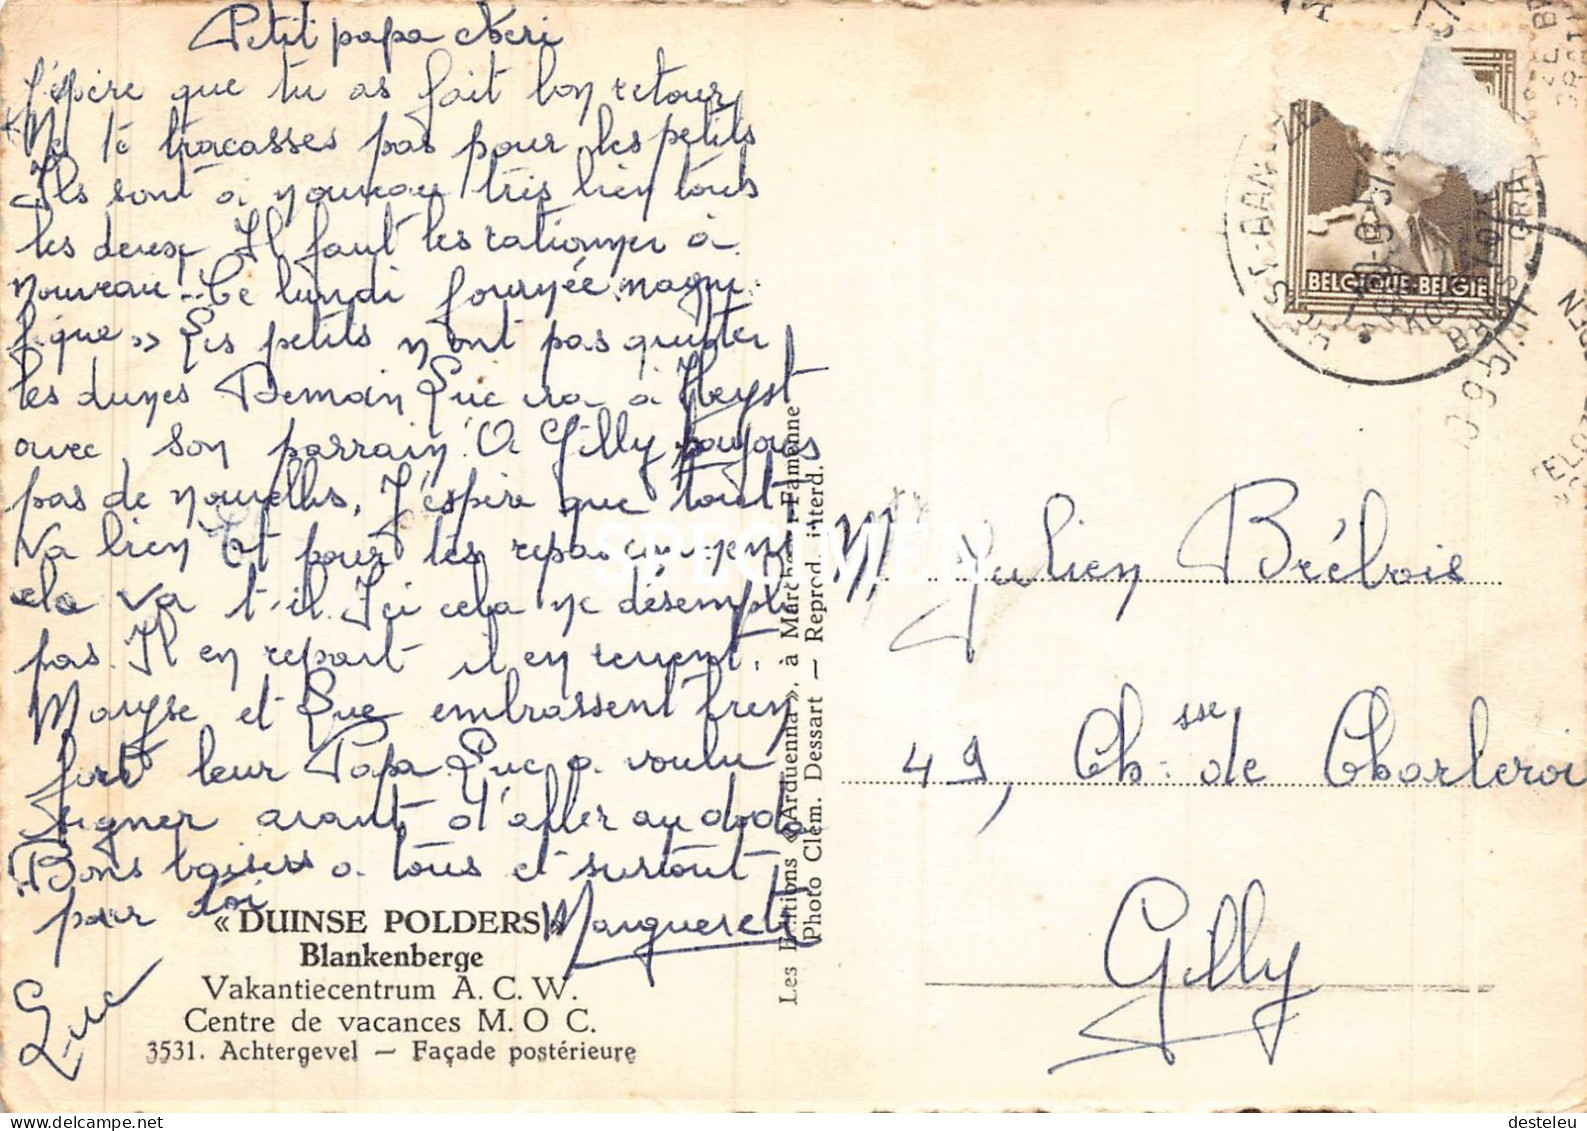 Petit papa chéri
J'espère que tu as fait bon retour
Ne te tracasses pas pour les petits
Ils sont à nouveau très bien tous
les deux Il faut les rationner à
nouveau. Ce lundi journée magni
fique » Les petits n'ont pas quitter
les dunes Demain Luc ira à Heyst
avec son parrain. A Gilly toujours
pas de nouvelles. J'espère que tout
va bien Et pour les repas comment
cela va t-il. Ici cela ne désempli
pas. Il en repart il en revient.
Maryse et Luc embrassent bien
fort leur Papa Luc a voulu
signer avant d'aller au dodo
Bons baisers à tous et surtout
pour toi
Marguerite
Luc
« DUINSE POLDERS »
Blankenberge
Vakantiecentrum A. C. W.
Centre de vacances M. O C.
3531. Achtergevel — Façade postérieure
Les Editions « Arduenna », à Marche-en-Famenne
Photo Clém. Dessart — Reprod. interd.
SPECIMEN
BELGIQUE-BELGIE
M. Julien Brébois
49, Ch.sse de Charleroi
Gilly
desteleu